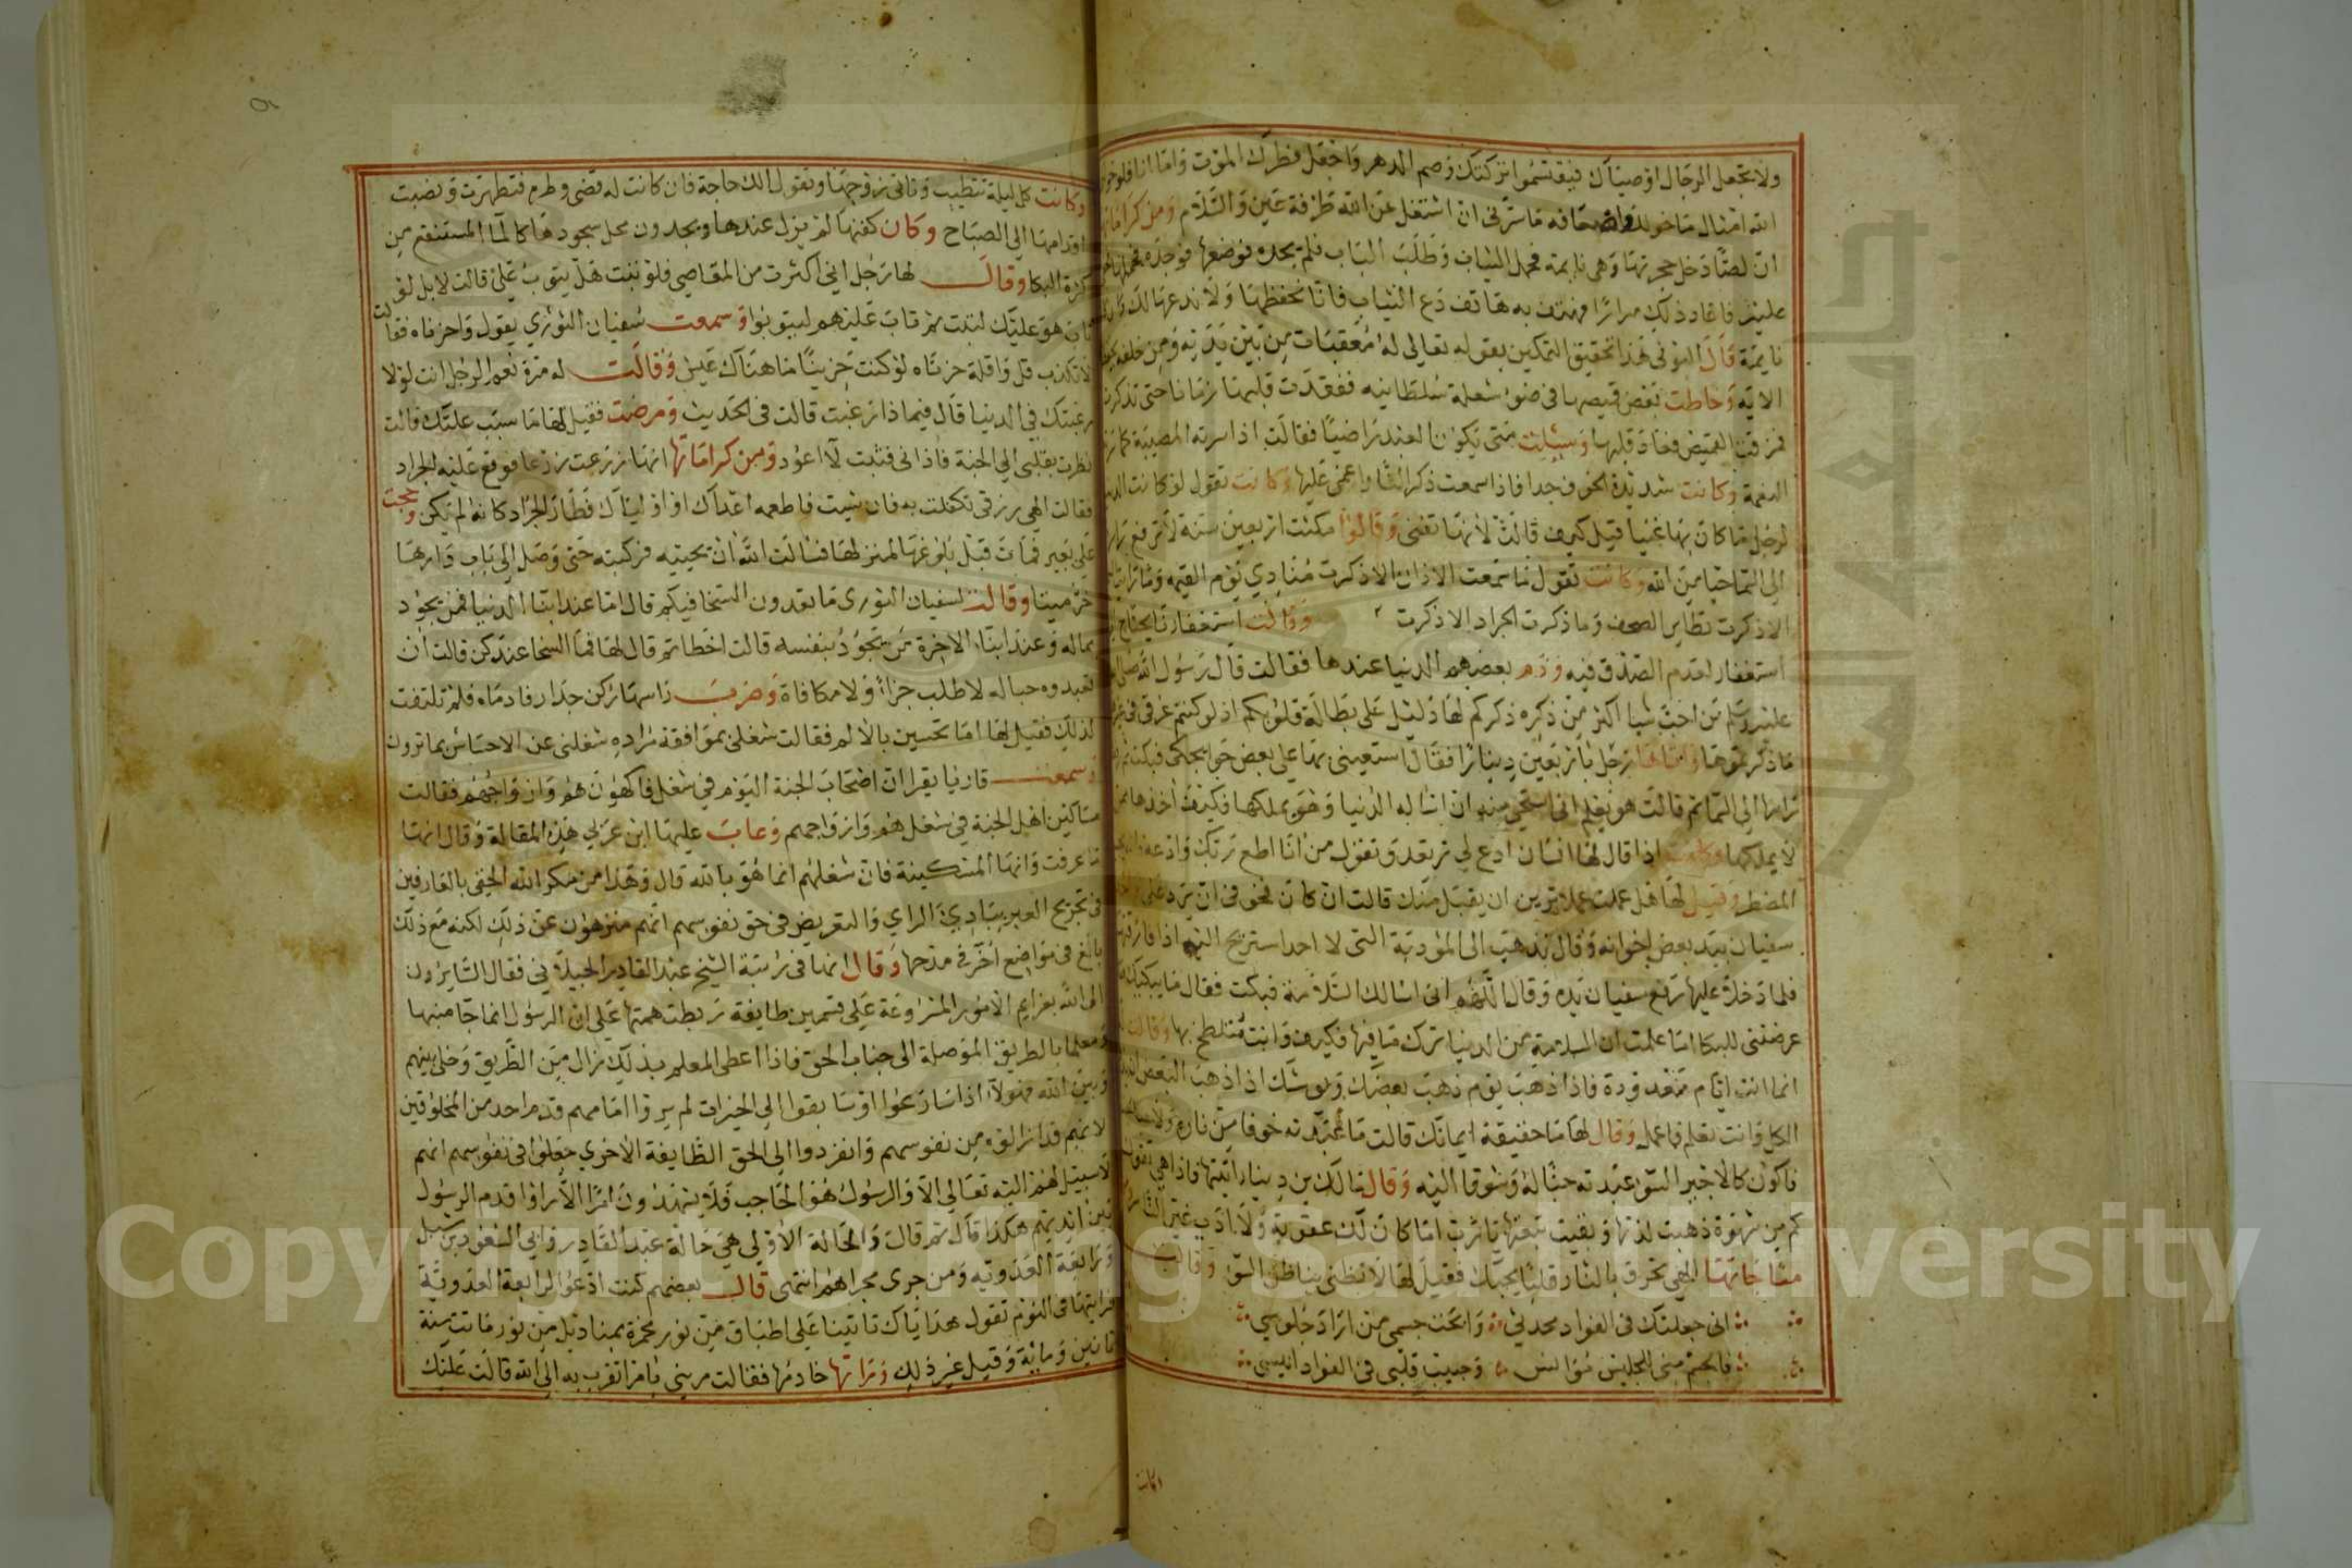 ولا تجعل الرجال اوصياك فيقتسموا تركتك وصم الدهر واجعل فطرك الموت واما انا فلو خولني
الله امثال ما خولك واضعافه ما سرني ان اشتغل عن الله طرفة عين والسلام ومن كراماتها
ان لصا دخل حجرتها وهي نايمة فحمل الثياب وطلب الباب فلم يجده فوضعها فوجده فحملها
عليه فاعاد ذلك مرارا فهتف به هاتف دع الثياب فانا نحفظها ولا ندعها لك وان كانت
نايمة قال البوني هذا تحقيق التمكين بقوله تعالى له معقبات من بين يديه ومن خلفه
الاية وخاطت بعض قميصها في ضوء شعلة سلطانيه ففقدت قلبها زمانا حتى تذكرت
فمزقت القميص فعاد قلبها وسيلت متى يكون العبد راضيا فقالت اذا سرته المصيبة كما
النعمة وكانت شديدة الخوف جدا فاذا سمعت ذكر النار اغمي عليها وكانت تقول لو كانت الدنيا
لرجل ما كان بها غنيا قيل كيف قالت لانها تفنى وقالوا مكثت اربعين سنة لا ترفع راسها
الى السما حيا من الله وكانت تقول ما سمعت الاذان الا ذكرت منادي يوم القيمة وما رايت
الا ذكرت تطاير الصحف وما ذكرت الجراد الا ذكرت وقالت استغفارنا يحتاج
استغفار لعدم الصدق فيه وذم بعضهم الدنيا عندها فقالت قال رسول الله صلى
عليه وسلم من احب شيا اكثر من ذكره ذكركم لها دليل على بطالة قلوبكم اذ لو كنتم غرقى في
ما ذكرتموها واتاها رجل باربعين دينارا فقال استعيني بها على بعض حوايجك فبكت ثم
راسها الى السما ثم قالت هو يعلم اني استحي منه ان اساله الدنيا وهو يملكها فكيف اخذها ممن
لا يملكها وكانت اذا قال لها انسان ادع لي ترتعد وتقول من انا اطع ربك وادعه
المضطر وقيل لها هل عملت عملا ترين ان يقبل منك قالت ان كان فخوفي ان يرد علي
سفيان بيد بعض اخوانه وقال نذهب الى المؤدبة التي لا احد استريح اليه اذا فارقتها
فلما دخلا عليها رفع سفيان يده وقال اللهم اني اسالك السلامة فبكت فقال ما يبكيك
عرضتني للبكا اما علمت ان السلامة من الدنيا ترك ما فيها فكيف وانت متلطخ بها وقالت
انما انت ايام معدودة فاذا ذهب يوم ذهب بعضك ويوشك اذا ذهب البعض
الكل وانت تعلم فاعمل وقال لها ما حقيقة ايمانك قالت ما عبدته خوفا من ناره ولا
فاكون كالاجير السو عبدته حبا له وشوقا اليه وقال مالك بن دينار اتيتها فاذا هي تقول
كم من شهوة ذهبت لذتها وبقيت تبعتها يا رب اما كان لك عقوبة ولا ادب غير النار
مناجاتها الهي تحرق بالنار قلبا يحبك فقيل لها لا تظني بنا ظن السو وقالت
اني جعلتك في الفواد محدثي وابحت جسمي من اراد جلوسي
فالجسم مني للجليس مؤانس وحبيب قلبي في الفواد انيسي
وكانت
وكانت كل ليلة تتطيب وتاتي زوجها وتقول الك حاجة فان كانت له قضى وطره فتطهرت ونصبت
اقدامها الى الصباح وكان كفنها لم يزل عندها ويجدون محل سجودها كالما المستنقع من
كثرة البكا وقال لها رجل اني اكثرت من المعاصي فلو تبت هل يتوب علي قالت لا بل لو
تاب هو عليك لتبت ثم تاب عليهم ليتوبوا وسمعت سفيان الثوري يقول واحزناه فقالت
لا تكذب قل واقلة حزناه لو كنت حزينا ما هناك عيش وقالت له مرة نعم الرجل انت لولا
رغبتك في الدنيا قال فيماذا رغبت قالت في الحديث ومرضت فقيل لها ما سبب علتك قالت
نظرت بقلبي الى الجنة فاذاني فتبت لا اعود ومن كراماتها انها زرعت زرعا فوقع عليه الجراد
فقالت الهي رزقي تكفلت به فان شيت فاطعمه اعداك او اولياك فطار الجراد كانه لم يكن وحجت
على بعير فمات قبل بلوغها المنزل لها فسالت الله ان يحييه فركبته حتى وصل الى باب دارها
خر ميتا وقالت لسفيان الثوري ما تعدون السخا فيكم قال اما عند ابنا الدنيا فمن يجود
بماله وعند ابنا الاخرة من يجود بنفسه قالت اخطاتم قال لها فما السخا عندكن قالت ان
تعبدوه حبا له لا طلب جزا ولا مكافاة وضرب راسها ركن جدار فادماه فلم تلتفت
لذلك فقيل لها اما تحسين بالالم فقالت شغلني بموافقة مراده شغلني عن الاحساس بما ترون
وسمعت قاريا يقرا ان اصحاب الجنة اليوم في شغل فاكهون هم وازواجهم فقالت
مساكين اهل الجنة في شغل هم وازواجهم وعاب عليها ابن عربي هذه المقالة وقال انها
ما عرفت وانها المسكينة فان شغلهم انما هو بالله قال وهذا من مكر الله الخفي بالعارفين
في تجريح الغير ببادي الراي والتعريض في حق نفوسهم انهم منزهون عن ذلك لكنه مع ذلك
بالغ في مواضع اخر في مدحها وقال انها في رتبة الشيخ عبد القادر الجيلاني فقال السايرون
الى الله بعزايم الامور المشروعة على قسمين طايفة ربطت همتها على ان الرسول انما جا منبها
ومعلما بالطريق الموصلة الى جناب الحق فاذا اعطى المعلم بذلك زال من الطريق وخلى بينهم
وبين الله فهولا اذا سارعوا او سابقوا الى الخيرات لم يروا امامهم قدم احد من المخلوقين
لانهم قد ازالوه من نفوسهم وانفردوا الى الحق الطايفة الاخرى جعلوا في نفوسهم انهم
لا سبيل لهم اليه تعالى الا والرسول هو الحاجب فلا يشهدون امرا الا راوا قدم الرسول
بين ايديهم هكذا قال ثم قالت والحالة الاولى هي حالة عبد القادر وابي السعود بن شبل
ورابعة العدويه ومن جرى مجراهم انتهى قال بعضهم كنت ادعو الرابعة العدوية
فرايتها في النوم تقول هداياك تاتينا على اطباق من نور مخمرة بمناديل من نور ماتت سنة
ثمانين وماية وقيل غير ذلك وراتها خادمها فقالت مريني بامر اتقرب به الى الله قالت عليك
Copyright © King Saud University